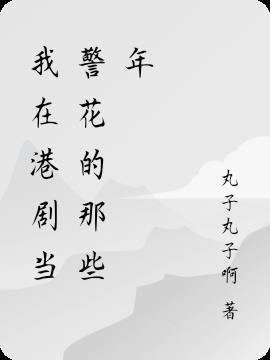 我在港剧当
警花的那些
年
丸子丸子啊 著